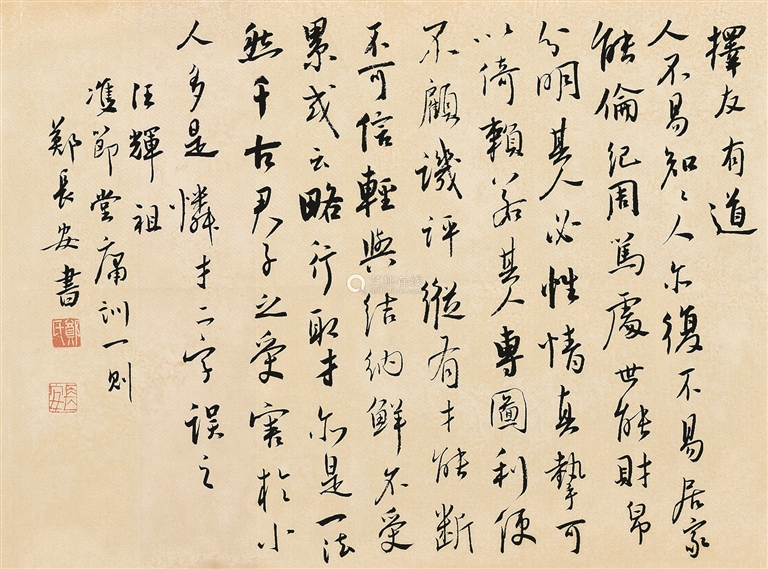 擇友有道
人不易知々人亦復不易居家
能倫紀周篤處世能財帛
分明其人必性情真摯可
以倚賴若其人專圖利便
不顧譏評縱有才能斷
不可信輕與結納鮮不受
累或云略行取才亦是一法
然千古君子之受害於小
人多是憐才二字誤之
汪輝祖
雙節堂庸訓一則
鄭長安書
鄭氏
長安